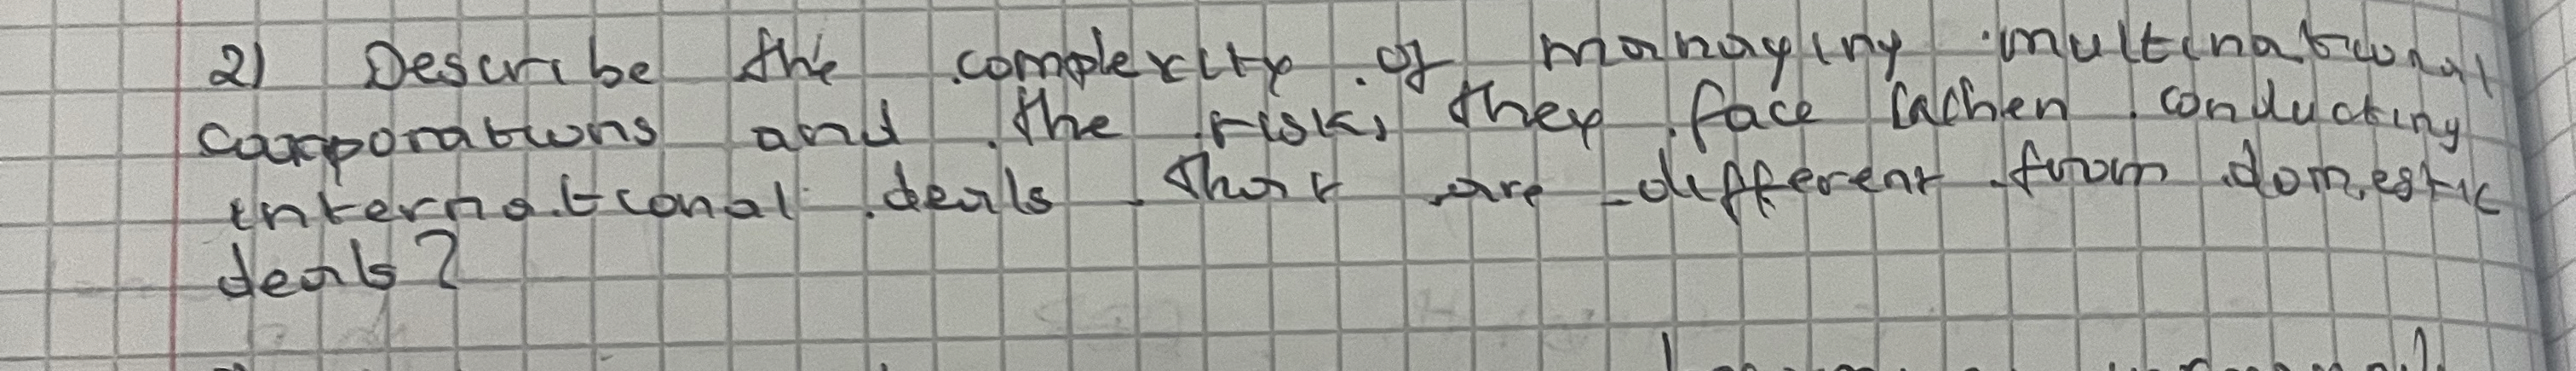 2) Describe the complexity of managing multinational
corporations and the risks they face when conducting
international deals that are different from domestic
deals?